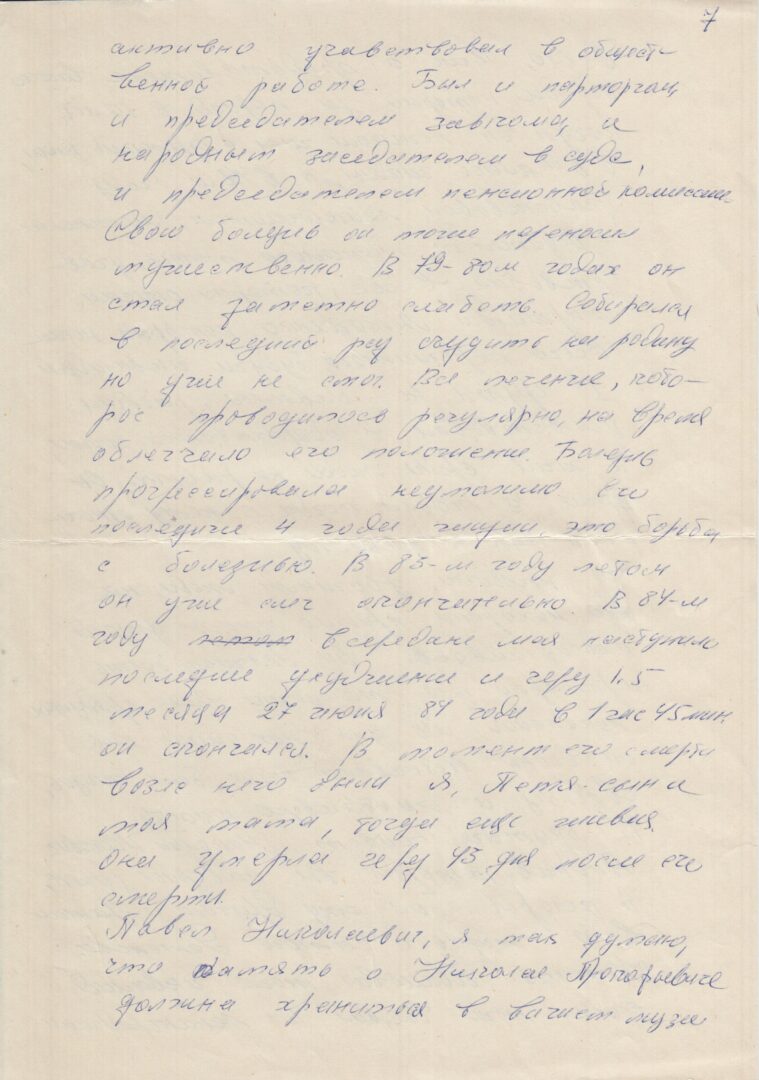 7
активно учавствовал в общест-
венной работе. Был и парторгом,
и председателем завкома, и
народным заседателем в суде,
и председателем пенсионной комиссии.
Свою болезнь он тоже переносил
мужественно. В 79-80м годах он
стал заметно слабеть. Собирался
в последний раз съездить на родину
но уже не смог. Все лечение, кото-
рое проводилось регулярно, на время
облегчало его положение. Болезнь
прогрессировала неумолимо. Его
последние 4 года жизни, это борьба
с болезнью. В 83-м году летом
он уже слег окончательно. В 84-м
году летом в середине мая наступило
последние ухудшение и через 1,5
месяца 27 июня 84 года в 1 час 45 мин.
он скончался. В момент его смерти
возле него были я, Петя-сын и
моя мама, тогда еще живая.
Она умерла через 43 дня после его
смерти.
Павел Николаевич, я так думаю,
что память о Николае Прокофьевиче
должна храниться в вашем музее